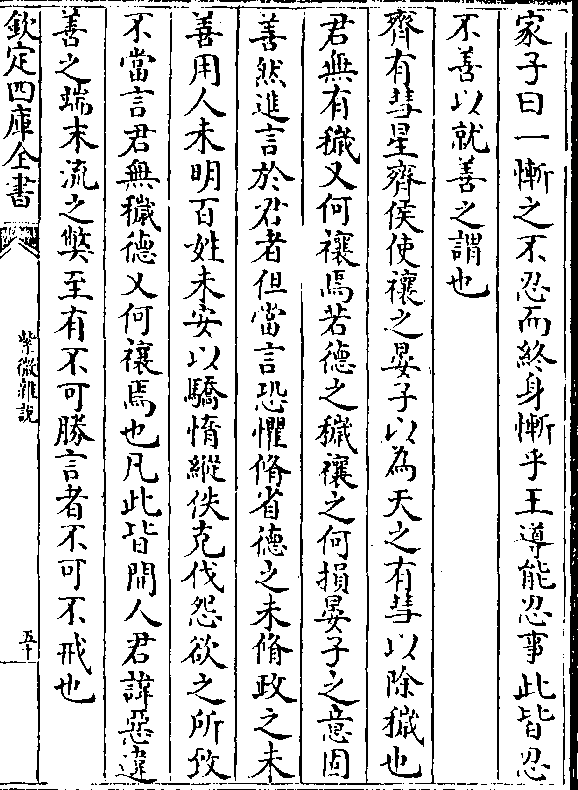 家子曰一慚之不忍而終身慚乎王導能忍事此皆忍
不善以就善之謂也
齊有彗星齊侯使禳之晏子以為天之有彗以除穢也
君無有穢又何禳焉若德之穢禳之何損晏子之意固
善然進言於君者但當言恐懼脩省德之未脩政之未
善用人未明百姓未安以驕惰縱佚克伐怨欲之所致
不當言君無穢德又何禳焉也凡此皆開人君諱惡違
善之端末流之弊至有不可勝言者不可不戒也
欽定四庫全書
紫微雜說
五十